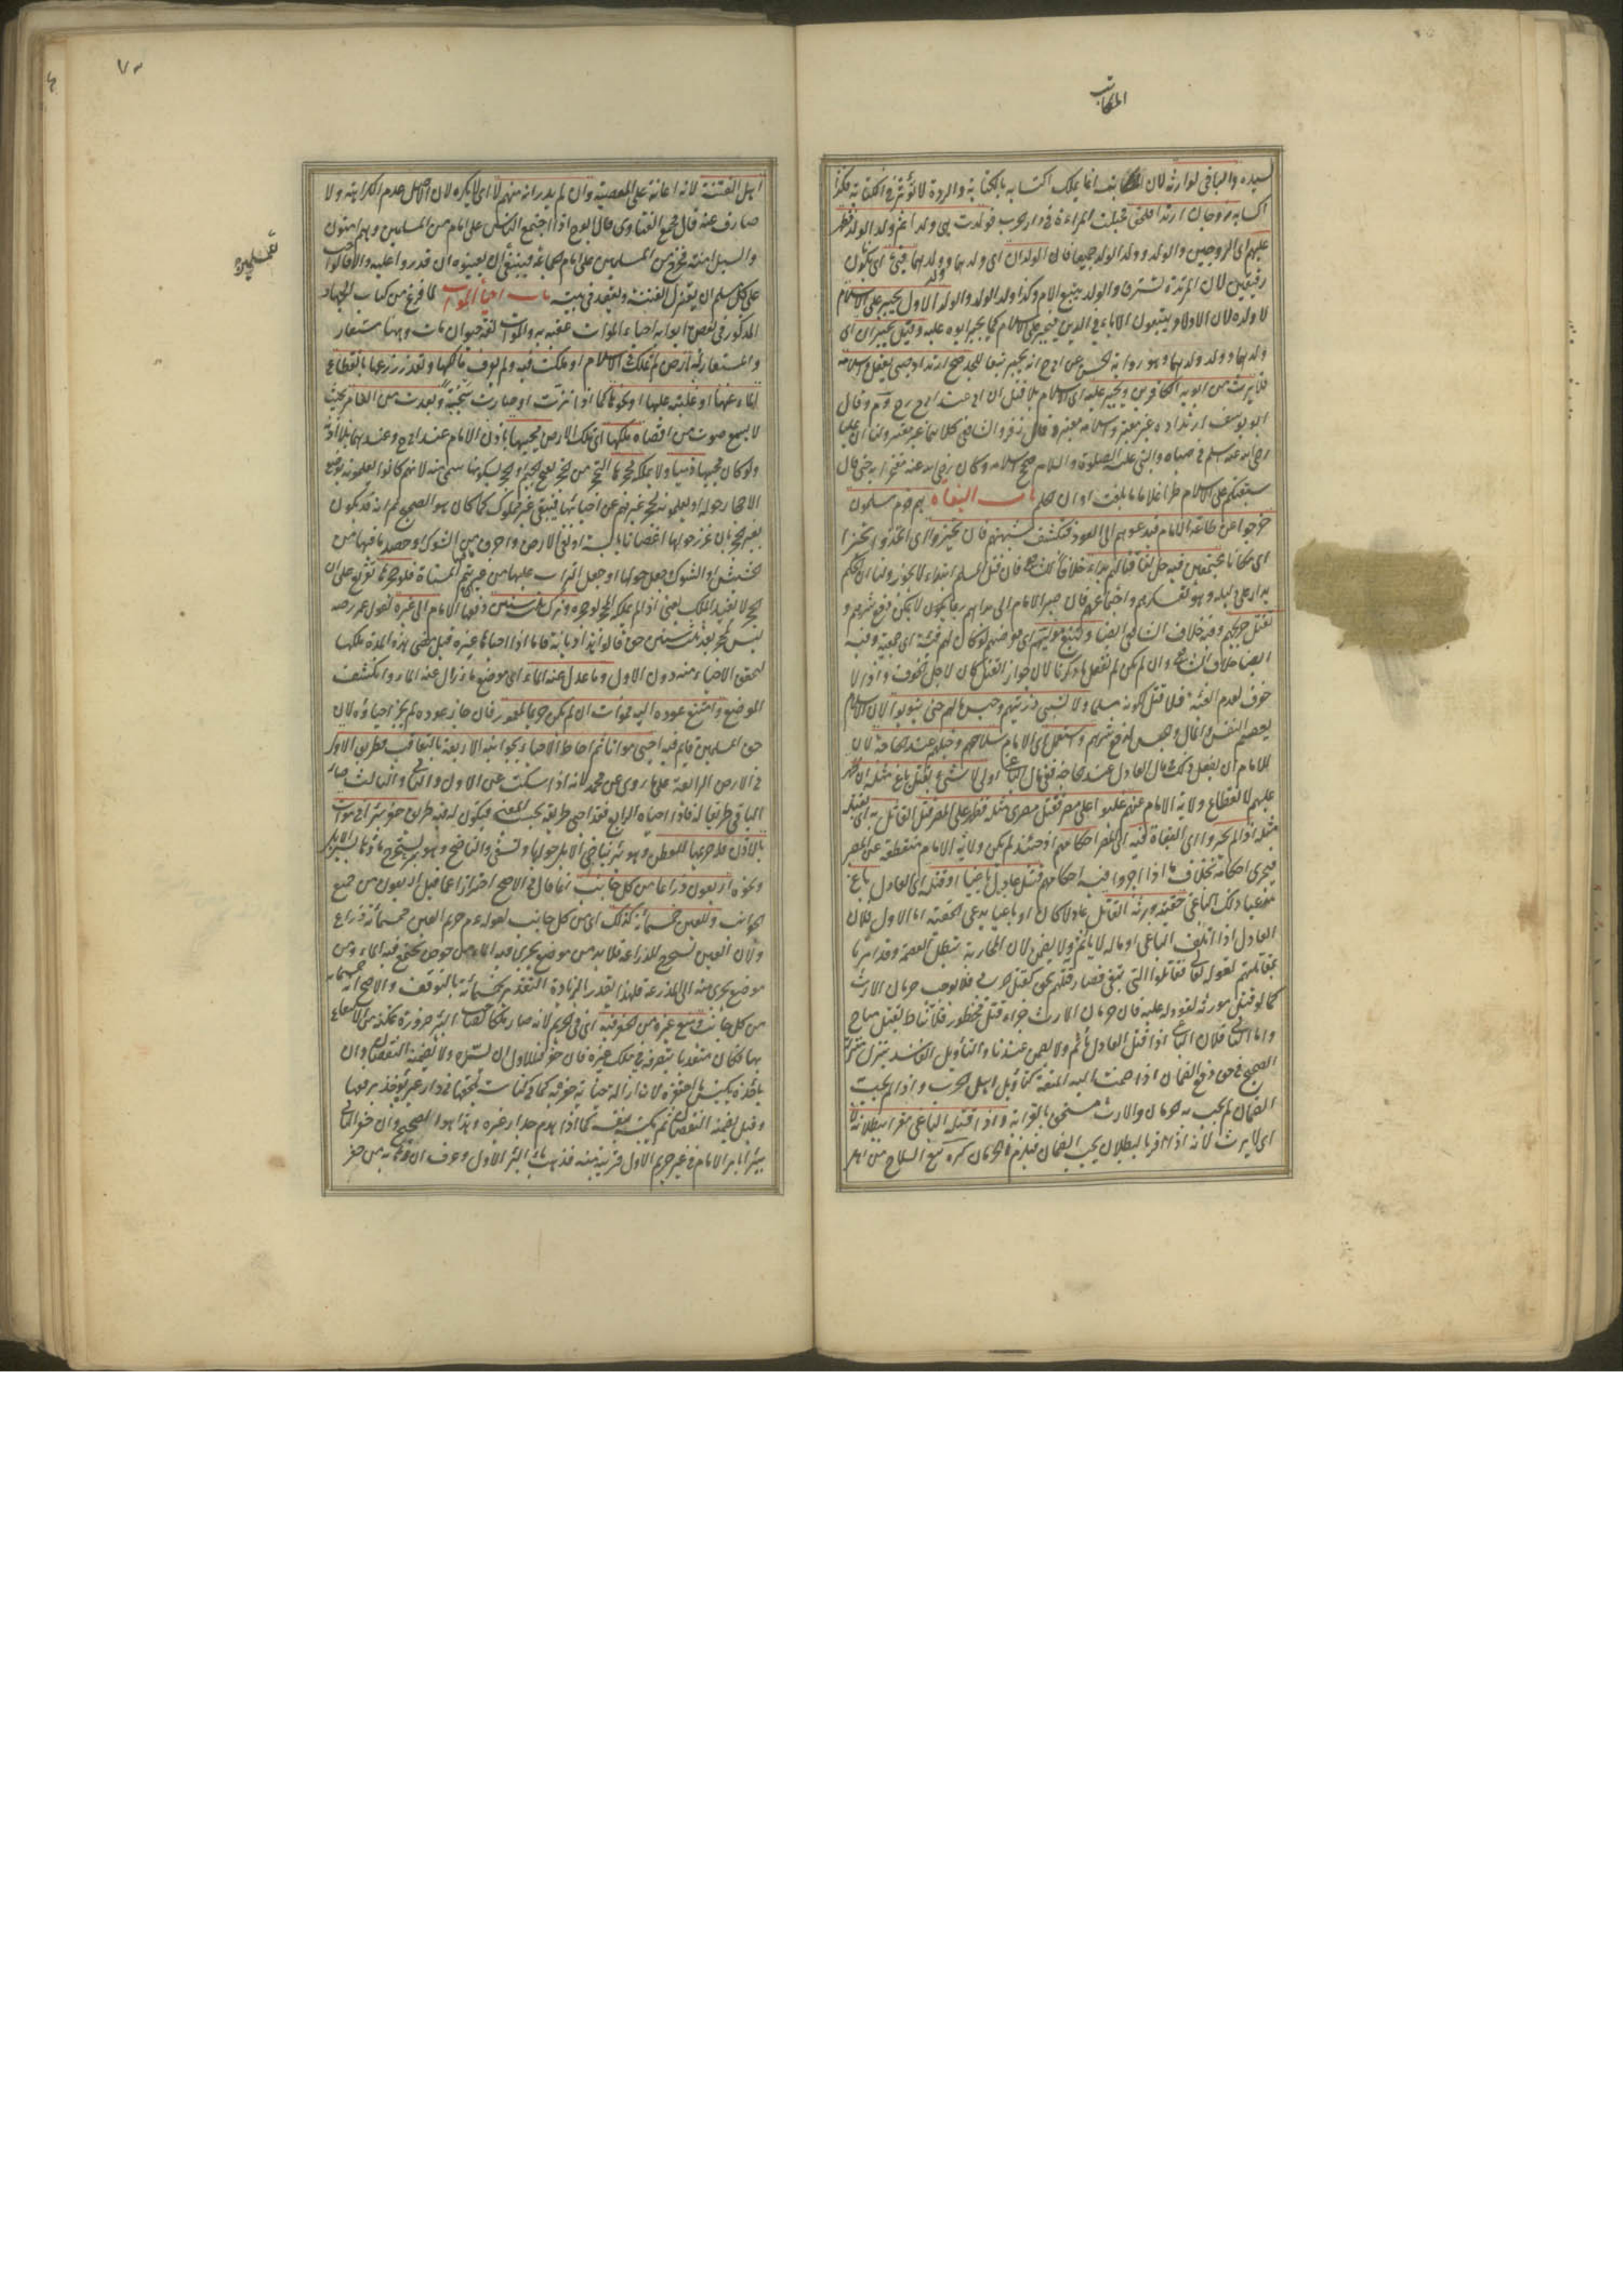 المكاتب
لسيده والباقي لوارثه لان المكاتب انما يملك اكتسابه بالكتابة والردة لا تؤثر في الكتابة فكذا
اكسابه زوجان ارتدا فلحقا فحبلت المراءة في دار الحرب فولدت هي ولدا ثم ولد الولد فظهر
عليهم اى الزوجين والولد وولد الولد جميعا فان الولدان اى ولدهما وولد ولدهما فيئ اى يكون
رقيقين لان المرتدة تسترق والولد يتبع الام وكذا ولد الولد والولد الاول يجبر على الاسلام
لا ولده لان الاولاد يتبعون الاباء في الدين فيجبر على الاسلام كما يجبر ابوه عليه وقيل يجبران اى
ولدهما وولد ولدهما وهو رواية الحسن عن ابي ح انه يجبر تبعا للجد صح ارتداد صبي يعقل واسلامه
فلا يرث من ابويه الكافرين ويجبر عليه اى الاسلام بلا قتل ان ابى عند ابي ح رح وم وقال
ابو يوسف ارتداده غير معتبر واسلامه معتبر وقال زفر والشافعي كلاهما غير معتبر ولنا ان عليا
رضي الله عنه اسلم في صباه والنبي عليه الصلوة والسلام صحح اسلامه وكان رضي الله عنه مفتخرا به حتى قال
سبقتكم على الاسلام طرا غلاما ما بلغت اوان حلم باب البغاة هم قوم مسلمون
خرجوا عن طاعة الامام فيدعوهم الى العود ويكشف شبهتهم فان تحيزوا اى اتخذوا حيزا
اى مكانا مجتمعين فيه حل لنا قتالهم بداء خلافا للشافعي فان قتل المسلم ابتداء لا يجوز ولنا ان الحكم
يدار على دليله وهو تعسكرهم واجتماعهم فان صبر الامام الى بداءهم ربما يكون لا يمكن دفع شرهم و
نقتل جريحهم وفيه خلاف الشافعي ايضا ونتبع موليهم اى معرضهم لو كان لهم فئة اى جمعية وفيه
ايضا خلاف الشافعي وان لم يكن لم نفعل ما ذكرنا لان جواز القتل كان لاجل الخوف واذ لا
خوف لعدم الفئة فلا قتل لكونه مسلما ولا نسبي ذريتهم وحبس مالهم حتى يتوبوا لان الاسلام
يعصم النفس والمال وحبس لدفع شرهم واستعمل اى الامام سلاحهم وخيلهم عند الحاجة لان
للامام ان يفعل ذلك بمال العادل عند حاجة ففي مال الباغي اولى لا شيء بقتل باغ مثله ان ظهر
عليهم لانقطاع ولاية الامام عنهم غلبوا على مصر فقتل مصري مثله فظهر على المصر قتل القاتل به اى بقتل
مثله اذا لم يجروا اى البغاة فيه اى المصر احكامهم اذ حينئذ لم يكن ولاية الامام منقطعة عن المصر
فيجري احكامه بخلاف ما اذا اجروا فيه احكامهم قتل عادل باغيا او قتله اى العادل باغ
مدعيا ذلك الباغي حقيته ورثه القاتل عادلا كان او باغيا يدعي الحقية اما الاول فلان
العادل اذا اتلف الباغي او ماله لا ياثم ولا يضمن لان المحاربة تبطل العصمة وقد امرنا
بمقاتلتهم لقوله تعالى فقاتلوا التي تبغي فصار قتلهم بحق كقتل حربي فلا يوجب حرمان الارث
كما لو قتل مورثه لقود له عليه فان حرمان الارث جزاء قتل محظور فلا يناط بقتل مباح
واما الثاني فلان الباغي اذا قتل العادل ياثم ولا يضمن عندنا والتاويل الفاسد ينزل منزلة
الصحيح في حق دفع الضمان اذا ضمت اليه المنعة كتاويل اهل الحرب واذا لم يجب
الضمان لم يجب به حرمان والارث مستحق بالقرابة واذا قتله الباغي مقرا ببطلانه لا
اى لا يرث لانه اذا اقر بالبطلان يجب الضمان فيلزم الحرمان كره بيع السلاح من اهل
اهل الفتنة لانه اعانة على المعصية وان لم يدر انه منهم لا اى لا يكره لان الاصل عدم الكراهة ولا
صارف عنه قال مجمع الفتاوى قال ابو ح اذا اجتمع الناس على امام من المسلمين وهم امنون
والسبل امنة فخرج من المسلمين على امام الجماعة فينبغي ان يعينوه ان قدروا عليه والا فالواجب
على كل مسلم ان يعتزل الفتنة ويقعد في بيته باب احياء الموات لما فرغ من كتاب الجهاد
المذكور في بعض ابوابه احياء الموات عقبه به والموات لغة حيوان مات وههنا مستعار
والمستعار له ارض لم تملك في الاسلام او ملكت فيه ولم يعرف مالكها وتعذر زرعها بانقطاع
الماء عنها او غلبته عليها او نحوهما كما اذا نزت او صارت سبخة وبعدت من العامر بحيث
لا يسمع صوت من اقصاه ملكها اى تلك الارض محييها باذن الامام عند ابي ح وعندهما بلا اذنه
ولو كان محييها ذميا ولا يملكه محجرها التحجير من الحجر بفتح الجيم او الحجر بسكونها سمي به لانهم كانوا يعلمونه بوضع
الاحجار حوله او يعلمونه لحجر غيرهم عن احيائها فيبقى غير مملوك كما كان هو الصحيح ثم انه قد يكون
بغير حجر بان غرز حولها اغصانا يابسة او نقى الارض واحرق ما فيها من الشوك او حصد ما فيها من
الحشيش او الشوك وجعل حولها او جعل التراب عليها من غير ان يتم المسناة فلو حجرها تفريع على ان
الحجر لا يفيد الملك يعني اذ لم يملكه المحجر لو حجره وترك ثلث سنين دفعها الامام الى غيره لقول عمر رضه
ليس لمحجر بعد ثلث سنين حق قالوا هذا ديانة فاما اذا احياها غيره قبل مضي هذه المدة ملكها
لتحقق الاحياء منه دون الاول وما عدل عنه الماء اى موضع ما زال عنه الماء وانكشف
الموضع وامتنع عوده اليه موات ان لم يكن حريما لعامر فان جاز عوده لم يجز احياؤه لان
حق المسلمين قايم فيه احيى مواتا ثم احاط الاحياء بجوانبه الاربعة بالتعاقب فطريق الاول
في الارض الرابعة على ما روي عن محمد لانه اذا سكت عن الاول والثاني والثالث صار
الباقي طريقا له فاذا احياه الرابع فقد احيى طريقه بحسب المعنى فيكون له فيه طريق حفر بئرا في موات
بالاذن فله حريمها للعطن وهو بئر يناخ الابل حولها وتسقى والناضح وهو بئر يستخرج ماؤها بسير الابل
ونحوه اربعون ذراعا من كل جانب انما قال في الاصح احترازا عما قيل اربعون من جميع
الجوانب وللعين خمسمائة كذلك اى من كل جانب لقوله ع م حريم العين خمسمائة ذراع
ولان العين تستخرج للزراعة فلابد من موضع يجري فيه الماء ومن حوض يجتمع فيه الماء ومن
موضع يجري منه الى المزرعة فلهذا يقدر بالزيادة التقدير بخمسمائة بالتوقيف والاصح انه خمسمائة
من كل جانب ومنع غيره من الحفر فيه اى في الحريم لانه صار ملكا لصاحب البئر ضرورة تمكنه من الانتفاع
بها فكان متعديا بتصرفه في ملك غيره فان حفر فللاول ان يسده ولا يضمنه النقصان وان
ياخذه بكبس ما احتفره لان ازالة جناية حفره به كما في كناسة يلقيها في دار غيره يؤخذ برفعها
وقيل يضمنه النقصان ثم يكبسه بنفسه كما اذا هدم جدار غيره وهذا هو الصحيح وان حفر الثاني
بئرا بامر الامام في غير حريم الاول قريبة منه فذهب ماء البئر الاول وعرف ان ذهابه من حفر